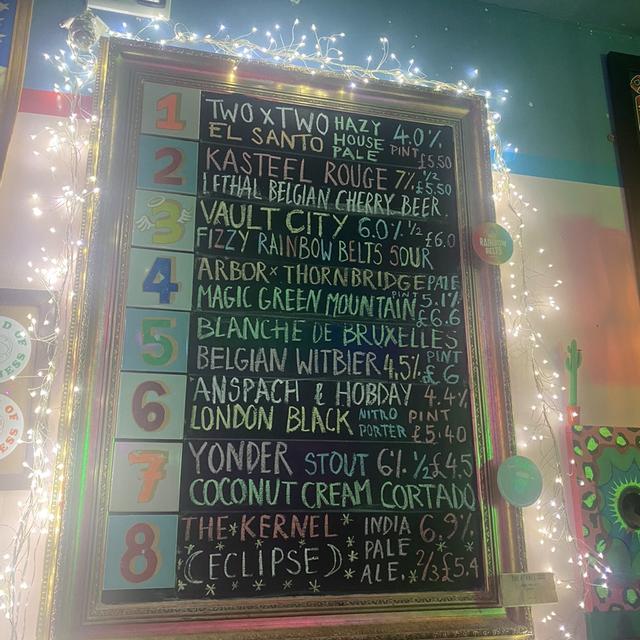 1 TWO X TWO HAZY 4.0%
EL SANTO HOUSE PALE PINT £5.50
2 KASTEEL ROUGE 7% 1/2 £5.50
LETHAL BELGIAN CHERRY BEER
3 VAULT CITY 6.0% 1/2 £6.0
FIZZY RAINBOW BELTS SOUR
4 ARBOR X THORNBRIDGE PALE
MAGIC GREEN MOUNTAIN PINT 5.1% £6.6
5 BLANCHE DE BRUXELLES
BELGIAN WITBIER 4.5% PINT £6
6 ANSPACH & HOBDAY 4.4%
LONDON BLACK NITRO PORTER PINT £5.40
7 YONDER STOUT 6% 1/2 £4.5
COCONUT CREAM CORTADO
8 THE KERNEL INDIA 6.9%
(ECLIPSE) PALE ALE. 2/3 £5.4
RAINBOW
BELTS